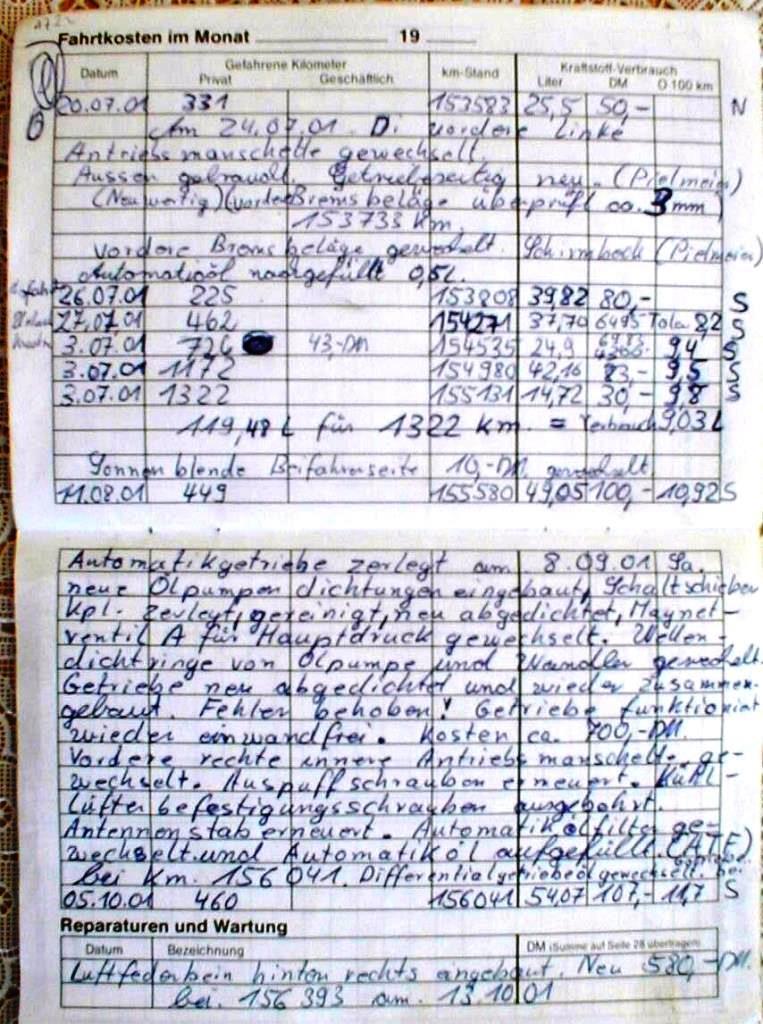 Fahrtkosten im Monat 19
Datum Gefahrene Kilometer km-Stand Kraftstoff-Verbrauch
Privat Geschäftlich Liter DM O 100 km
20.07.01 331 153583 25,5 50,- N
Am 24.07.01. Di vordere linke
Antriebsmanschette gewechselt.
Aussen gebraucht. Getriebeseitig neu. (Pielmeier)
(Neuwertig) (vordere Bremsbeläge überprüft ca. 3 mm)
153733 Km.
Vordere Bremsbeläge gewechselt. Schirmbeck (Pielmeier)
Automatiköl nachgefüllt 0,5 L.
26.07.01 225 153808 39,82 80,- S
27.07.01 462 154271 37,70 6495 8,2 S
3.07.01 726 43,-DM 154535 24,9 9,4 S
3.07.01 1172 154980 42,16 83,- 9,5 S
3.07.01 1322 155131 14,72 30,- 9,8 S
119,48 L für 1322 Km. = Verbrauch 9,03 L
Sonnenblende Beifahrerseite 10,-DM gewechselt
11.08.01 449 155580 49,05 100,- 10,92 S
Automatikgetriebe zerlegt am 8.09.01 Sa.
neue Ölpumpendichtungen eingebaut, Schaltschieber
Kpl. zerlegt, gereinigt, neu abgedichtet, Magnet-
ventil A für Hauptdruck gewechselt. Wellen-
dichtringe von Ölpumpe und Wandler gewechselt.
Getriebe neu abgedichtet und wieder zusammen-
gebaut. Fehler behoben! Getriebe funktioniert
wieder einwandfrei. Kosten ca. 700,-DM.
Vordere rechte innere Antriebsmanschette ge-
wechselt. Auspuffschrauben erneuert. Kühl-
lüfterbefestigungsschrauben ausgebohrt.
Antennenstab erneuert. Automatikölfilter ge-
wechselt und Automatiköl aufgefüllt. (ATF)
bei Km. 156041. Differentialgetriebeöl gewechselt. bei
05.10.01 460 156041 54,07 107,- 11,7 S
Reparaturen und Wartung
Datum Bezeichnung DM (Summe auf Seite 28 übertragen)
Luftfederbein hinten rechts eingebaut. Neu 580,-DM.
bei. 156 393 am. 13.10.01